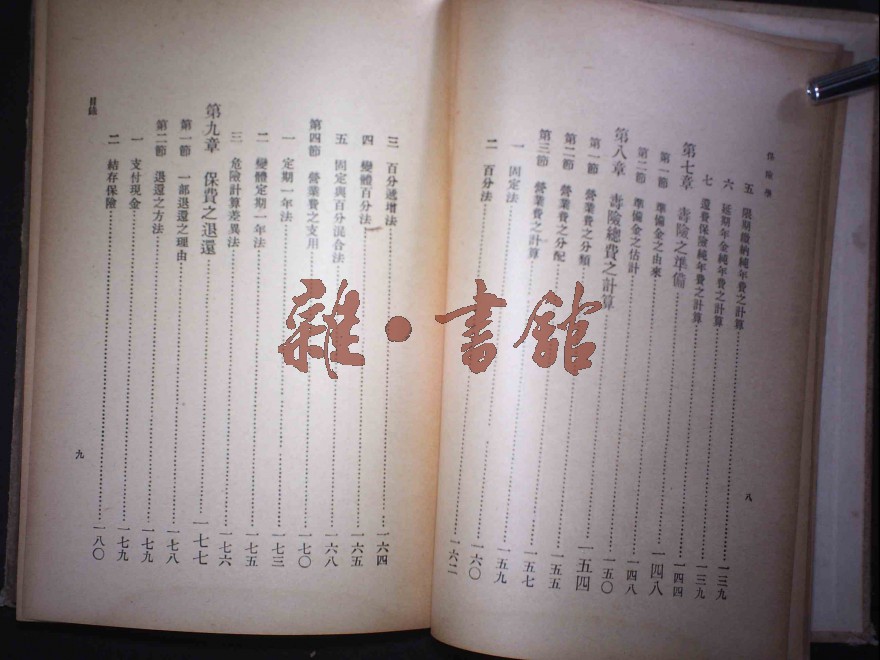 保險學
八
五 限期繳納純年費之計算……一三九
六 延期年金純年費之計算……一三九
七 還費保險純年費之計算……一四四
第七章 壽險之準備……一四八
第一節 準備金之由來……一四八
第二節 準備金之估計……一五〇
第八章 壽險總費之計算……一五四
第一節 營業費之分類……一五五
第二節 營業費之分配……一五七
第三節 營業費之計算……一五九
一 固定法……一六〇
二 百分法……一六二
三 百分遞增法……一六四
四 變體百分法……一六五
五 固定與百分混合法……一六八
第四節 營業費之支用……一七〇
一 定期一年法……一七三
二 變體定期一年法……一七五
三 危險計算差異法……一七六
第九章 保費之退還……一七七
第一節 一部退還之理由……一七八
第二節 退還之方法……一七九
一 支付現金……一七九
二 結存保險……一八〇
目錄
九
雜·書館